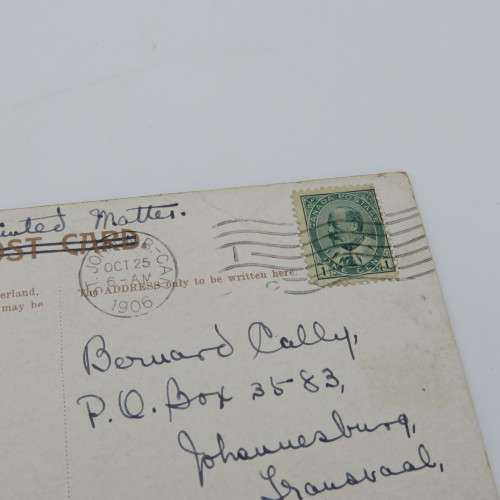 Printed Matter.
POST CARD
CANADA POSTAGE
ST. JOHN, N.B.-CA
OCT 25
6-AM
1906
1
1
erland,
may be
The ADDRESS only to be written here.
Bernard Cally,
P.O. Box 3583,
Johannesburg,
Transvaal,